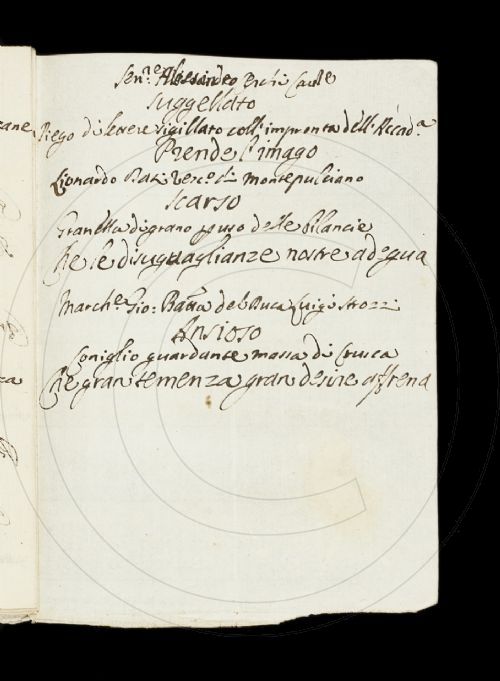 Sen:re Alessandro Cav:re
Suggellato
Piego di lettere sigillato coll'impronta dell'Accad:a
Prende l'imago
Lionardo Dati Vesc:o di Montepulciano
Scarso
Granella di grano peso delle Bilancie
Che le disuguaglianze nostre adegua
March:e Gio: Batta del Duca Luigi Strozzi
Ansioso
Coniglio guardante massa di Crusca
Che gran temenza gran desire affrena